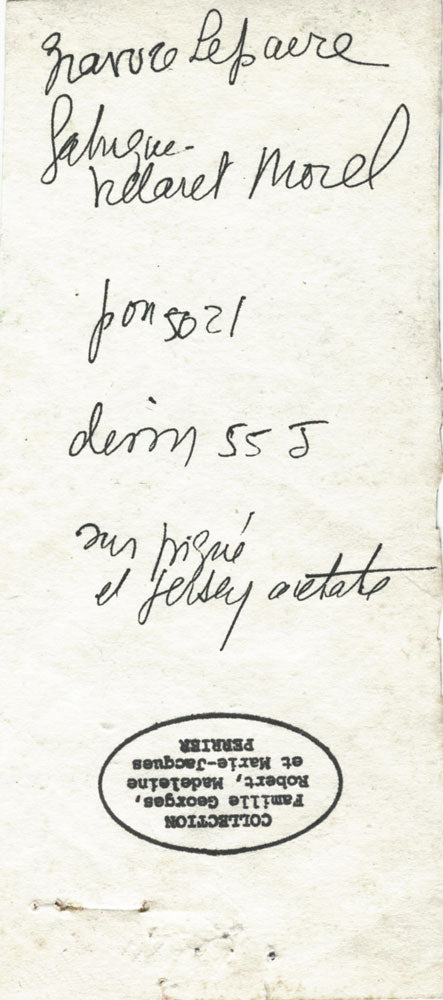 Gravure Lepavre
fabrique
Velaret Morel
pon 5021
dessin 55 J
sur piqué
et jersey acetate
COLLECTION
Famille Georges,
Robert, Madeleine
et Marie-Jacques
PERRIER